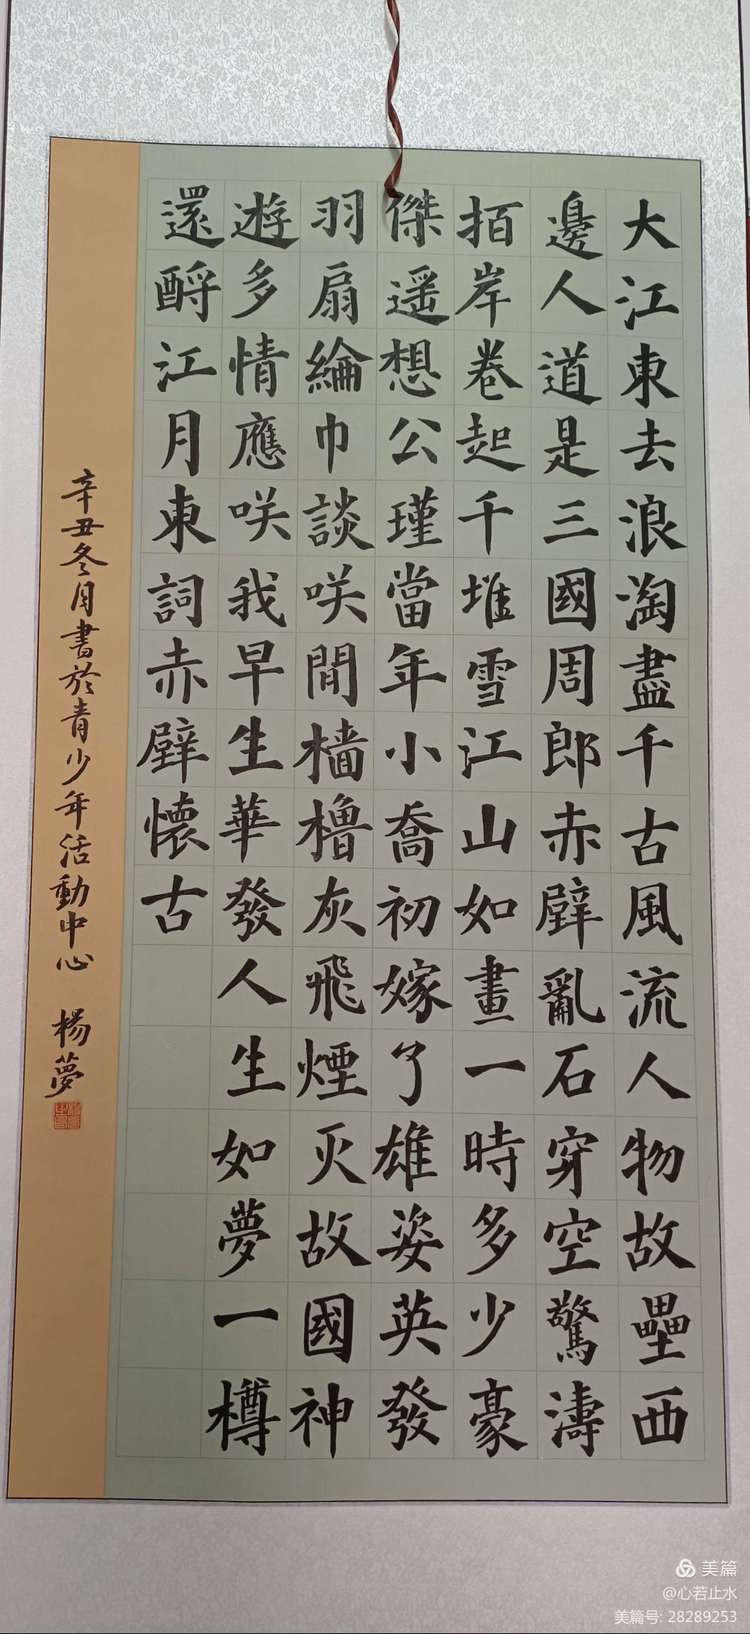 大江東去浪淘盡千古風流人物故壘西
邊人道是三國周郎赤壁亂石穿空驚濤
拍岸卷起千堆雪江山如畫一時多少豪
傑遥想公瑾當年小喬初嫁了雄姿英發
羽扇綸巾談咲間樯櫓灰飛煙灭故國神
遊多情應咲我早生華發人生如夢一樽
還酹江月東詞赤壁懷古
辛丑冬月書於青少年活動中心 楊夢
美篇
@心若止水
美篇号: 28289253